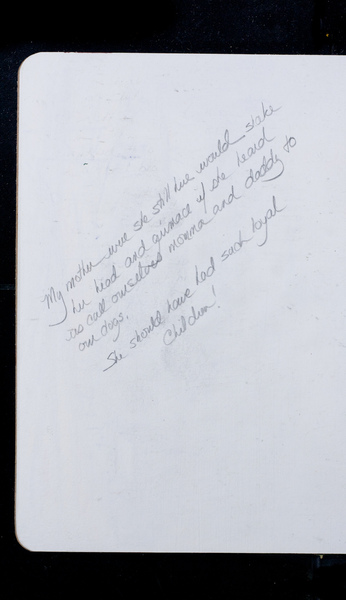 My mother were she still live would shake
her head and grimace if she heard
us call ourselves momma and daddy to
our dogs.
She should have had such loyal
Children!